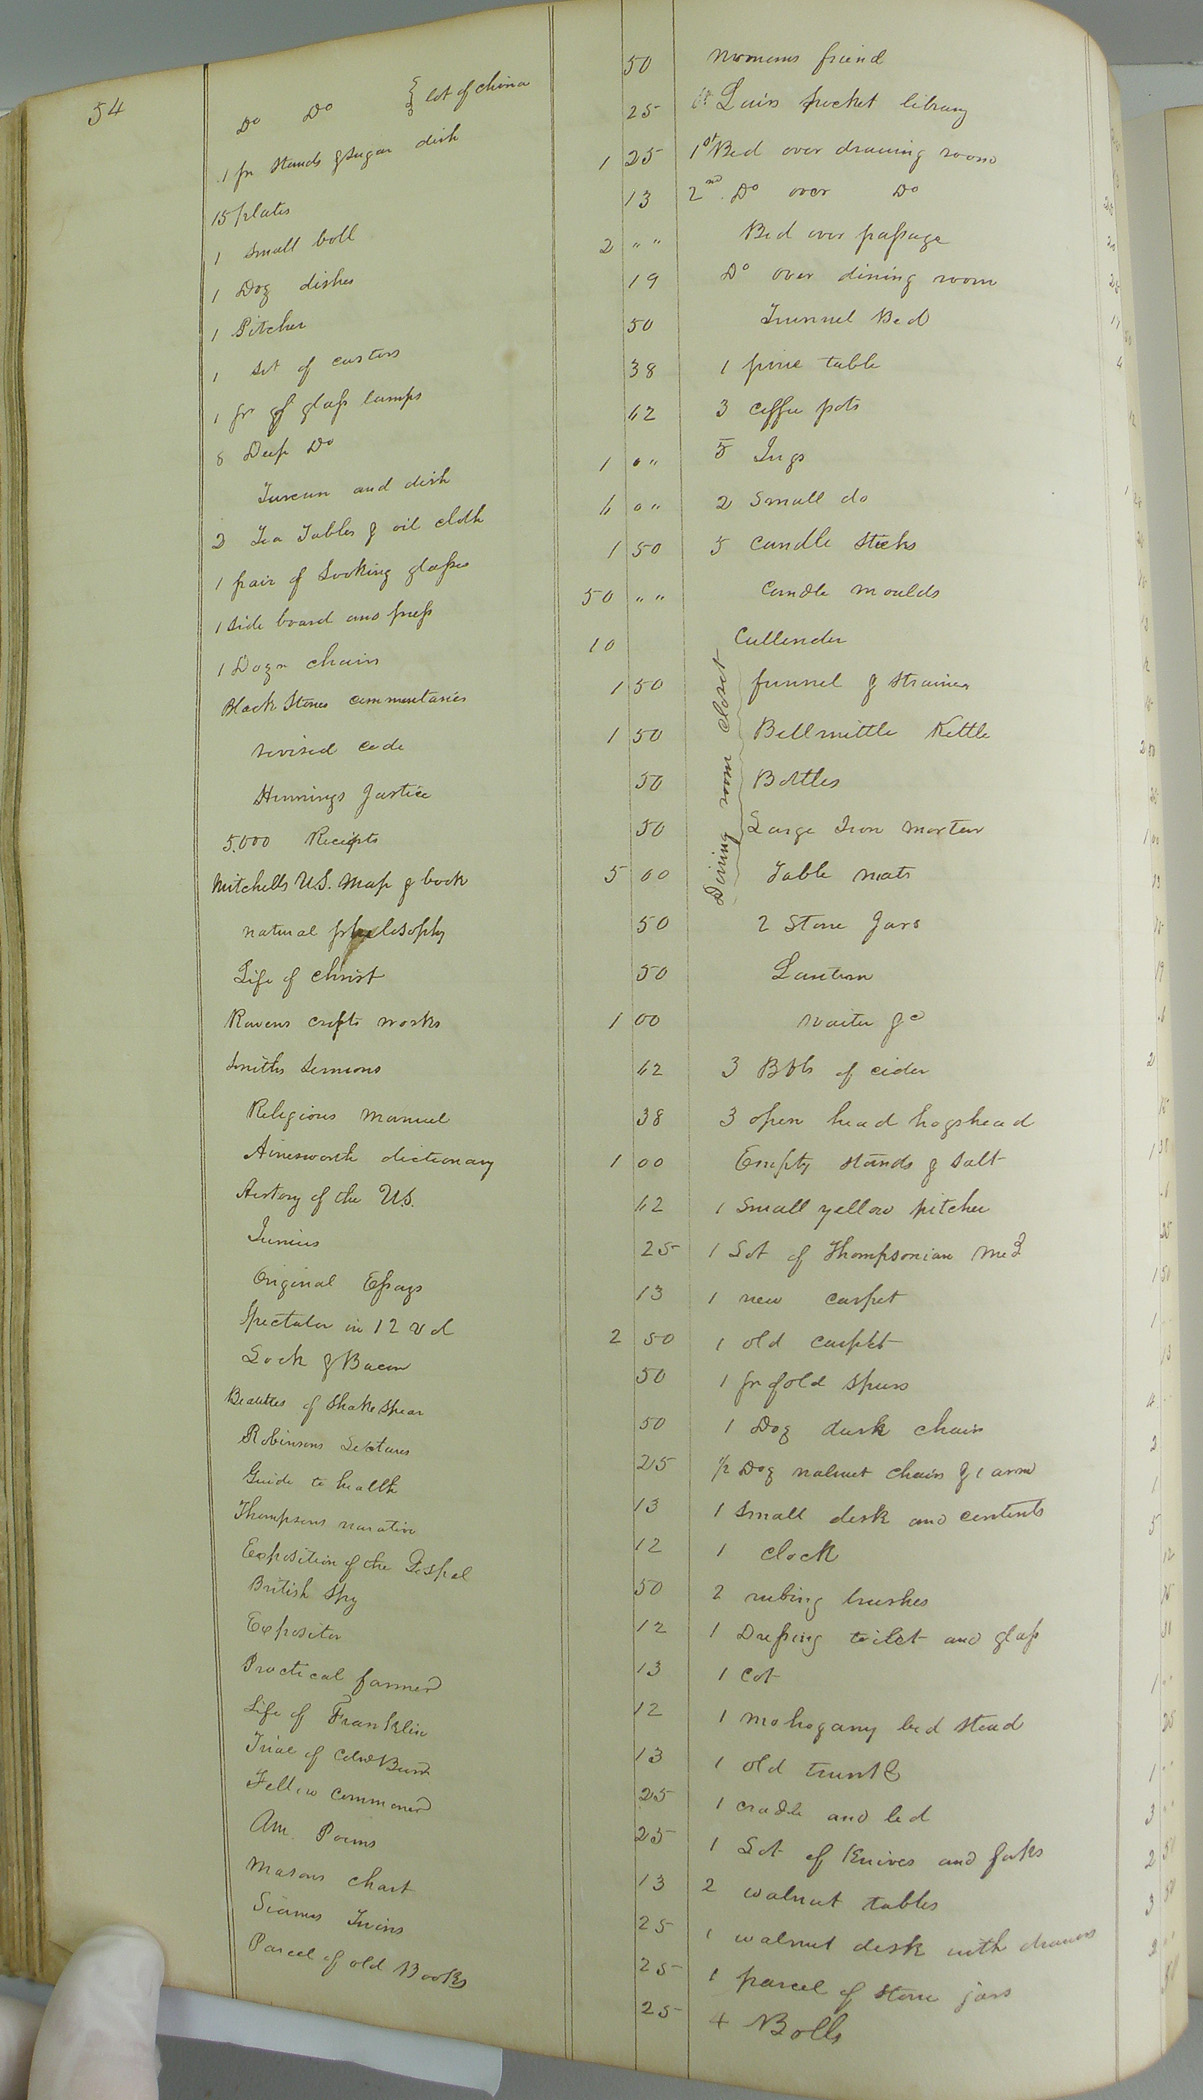 54
Do Do } lot of china 50
1 pr stands & sugar dish 25
15 plates 1 25
1 small boll 13
1 Doz dishes 2 " "
1 Pitcher 19
1 set of castors 50
1 pr of glass lamps 38
8 Deep Do 62
Tureen and dish 1 0 "
2 Tea Tables & oil cloth 6 0 "
1 pair of Looking glasses 1 50
1 side board and press 50 " "
1 Dozn chairs 10
Black Stones commentaries 1 50
revised code 1 50
Hennings Justice 50
5.000 Receipts 50
Mitchells U.S. Map & book 5 00
natural philosophy 50
Life of Christ 50
Ravens crofts works 1 00
Smiths Sermons 62
Religious manuel 38
Ainesworth dictionary 1 00
History of the U.S. 62
Junius 25
Original Essays 13
Spectator in 12 vol 2 50
Lock & Bacon 50
Beauties of Shakespear 50
Robinsons Lectures 25
Guide to health 13
Thompsons narative 12
Exposition of the Gospel 50
British Spy 12
Expositor 13
Practical farmer 12
Life of Franklin 13
Trial of Colo Burr 25
Fellow commoner 25
Am. Poems 13
Masons chart 25
Siames Twins 25
Parcel of old Books 25
Womans friend
Lairs pocket library
1st Bed over drawing room
2nd Do over Do
Bed over passage
Do over dining room
Trunnel Bed
1 pine table
3 coffee pots
5 Jugs
2 small do
5 candle sticks
candle moulds
Cullender
Dining room closet
funnel & strainer
Bellmittle Kettle
Bottles
Large Iron mortar
Table mats
2 Stone Jars
Lantern
waiter &c
3 Bbls of cider
3 open head hogshead
Empty stands & salt
1 small yellow pitcher
1 Set of Thompsonian Med
1 new carpet
1 old carpet
1 pr of old spurs
1 Doz dark chairs
1/2 Doz walnut chairs & 1 arm
1 small desk and contents
1 clock
2 rubing brushes
1 Dressing toilet and glass
1 cot
1 mohogany bed stead
1 old trunk
1 cradle and bed
1 Set of Knives and forks
2 walnut tables
1 walnut desk with drawers
1 parcel of stone jars
4 Bolls